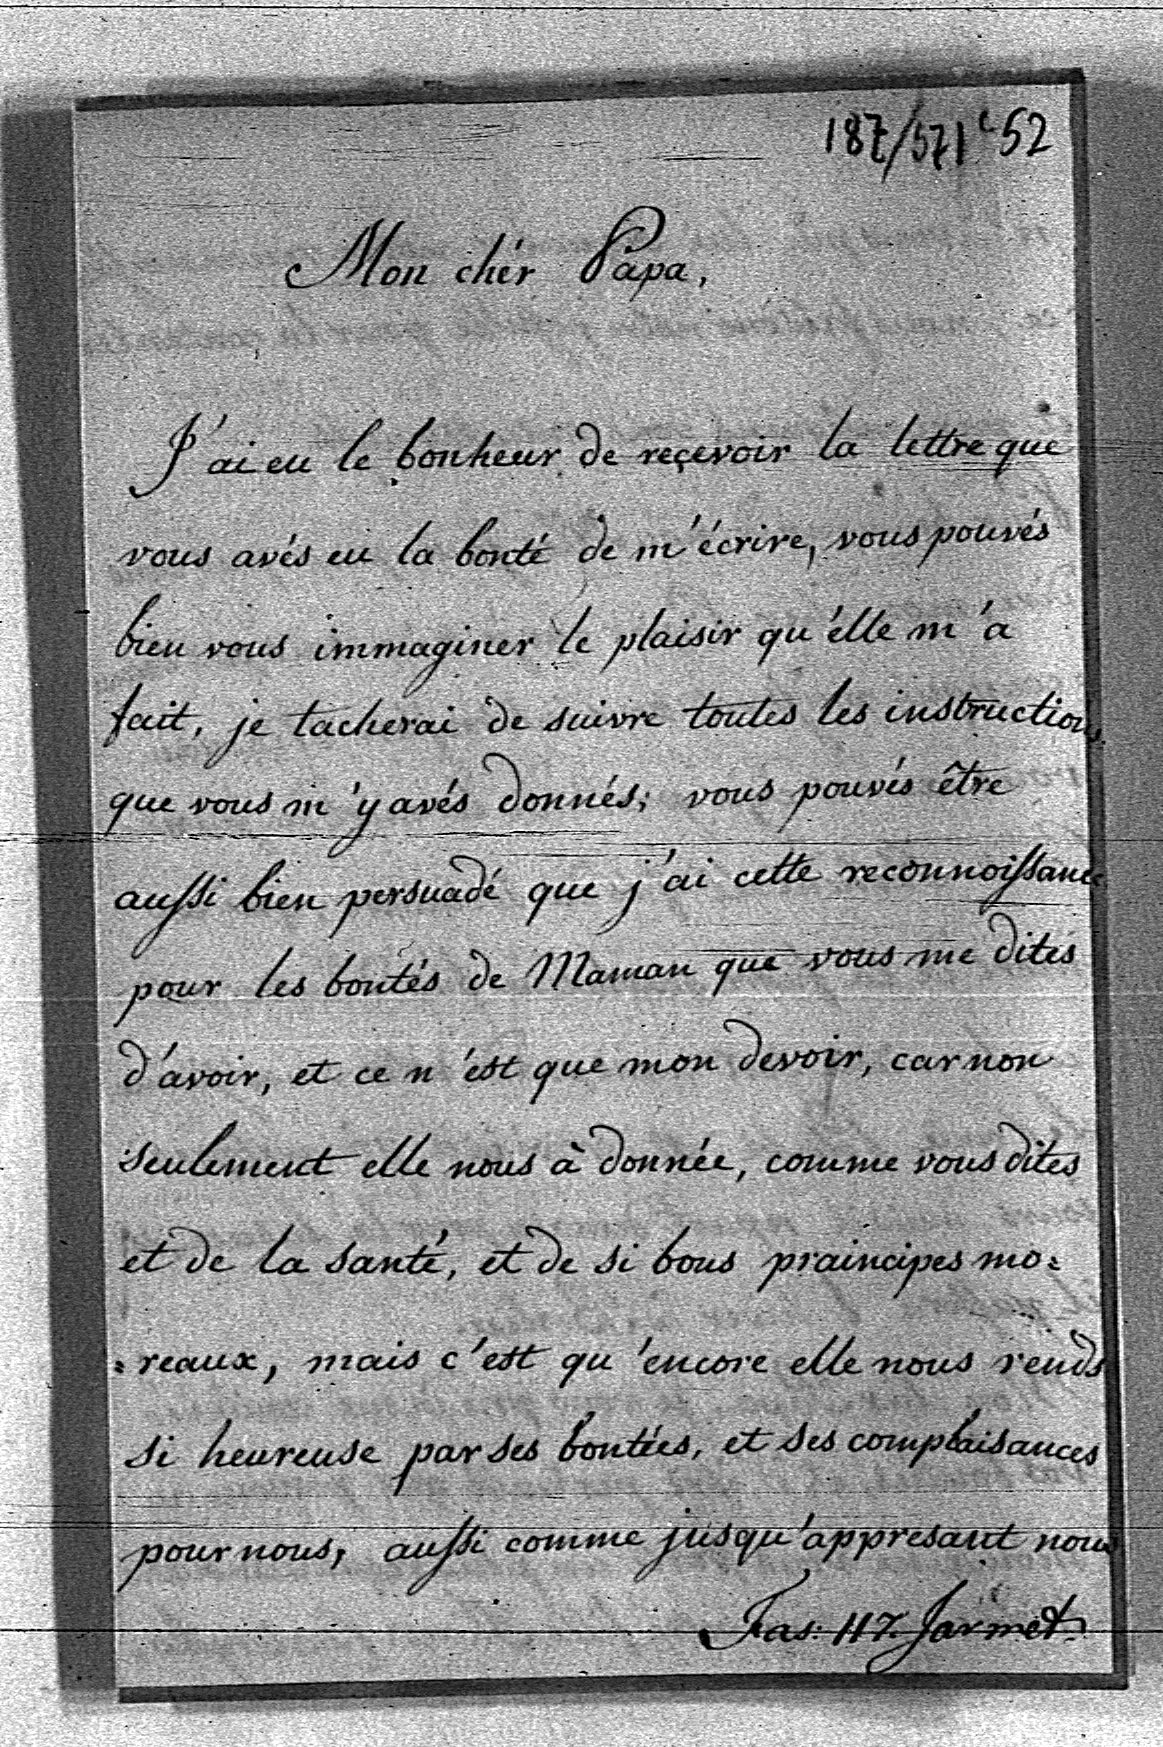 187/571 c 52
Mon chér Papa,
J'ai eu le bonheur de reçevoir la lettre que
vous avés eu la bonté de m'écrire, vous pouvés
bien vous immaginer le plaisir qu'élle m'a
fait, je tacherai de suivre toutes les instructions
que vous m'y avés donnés; vous pouvés être
aussi bien persuadé que j'ai cette reconnoissance
pour les bontés de Maman que vous me dites
d'avoir, et ce n'est que mon devoir, car non
seulement elle nous à donnée, comme vous dites
et de la santé, et de si bons praincipes mo=
=reaux, mais c'est qu'encore elle nous rends
si heureuse par ses bontées, et ses complaisances
pour nous, aussi comme jusqu'appresant nous
Fas: 117. Jarmet.